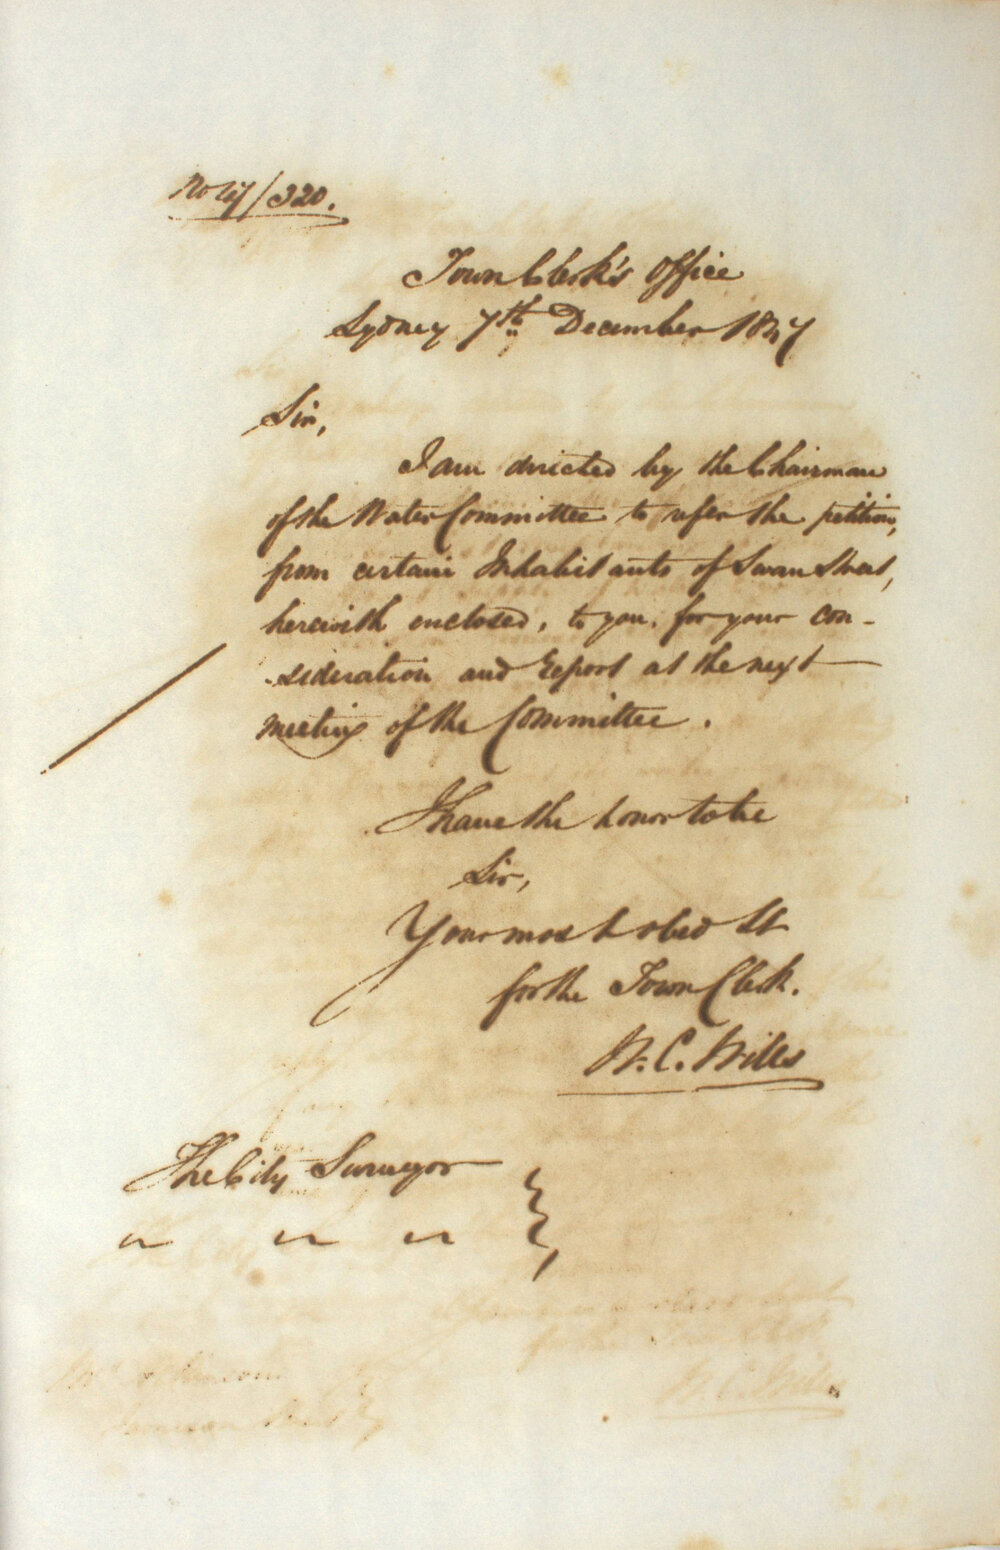 No 47/320.
Town Clerk's Office
Sydney 7th December 1847
Sir,
I am directed by the Chairman
of the Water Committee to refer the petition,
from certain Inhabitants of Swan Street,
herewith enclosed, to you, for your con-
-sideration and Report at the next
meeting of the Committee.
I have the honor to be
Sir,
Your most obed St
for the Town Clerk.
W. C. Wills
The City Surveyor
for the Town Clerk
W. C. Wills